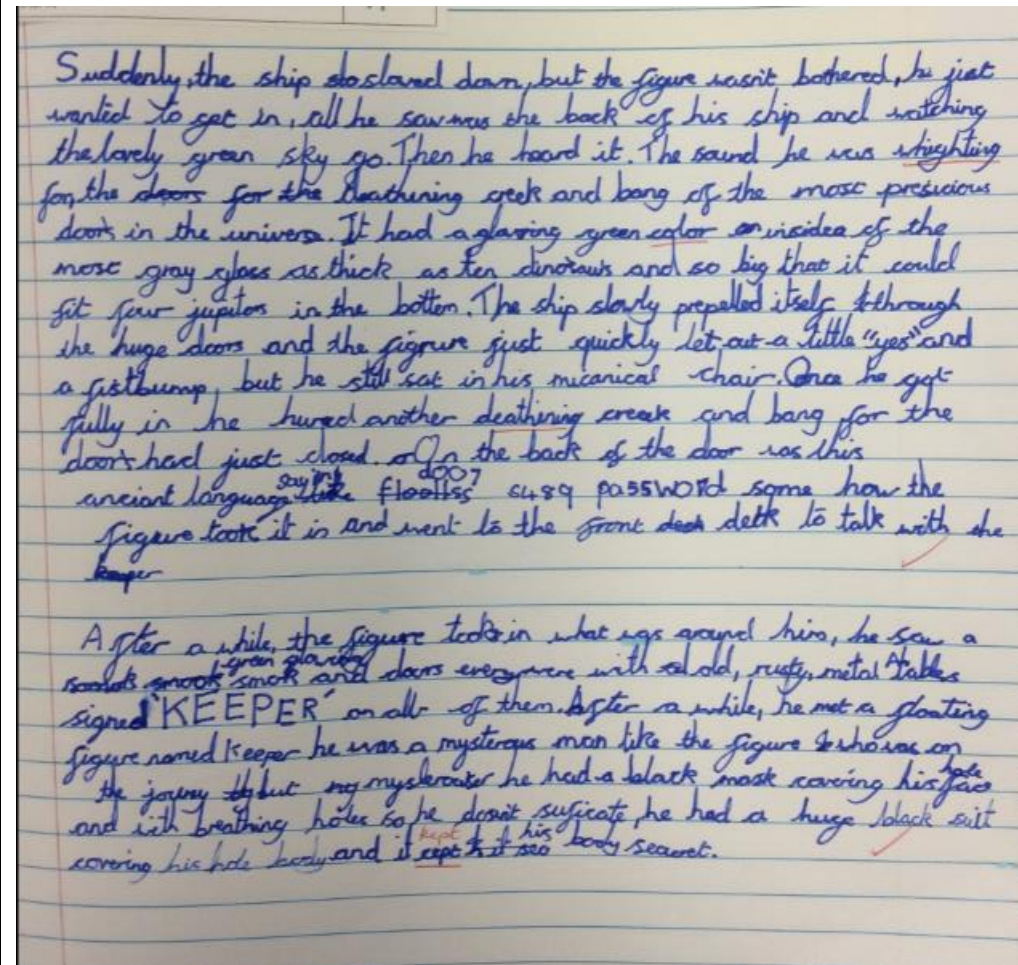 Suddenly, the ship slowed down, but the figure wasn't bothered, he just
wanted to get in, all he saw was the back of his ship and watching
the lovely green sky go. Then he heard it. The sound he was whighting
for, the doors for the deathining creek and bang of the most presicious
doors in the universe. It had a glaring green color insidea of the
most gray glass as thick as ten dinosaurs and so big that it could
fit four jupitors in the bottem. The ship slowly prepelled itself through
the huge doors and the figrure just quickly let out a little "yes" and
a fistbump, but he still sat in his micanical chair. Once he got
fully in he hured another deathining creak and bang for the
doors had just closed. On the back of the door was this
anciant language saying 6489 password some how the
figure took it in and went to the front desk to talk with the
keeper
After a while, the figure took in what was around him, he saw a
green glowing smok and doors everywere with old, rusty, metal tables
signed 'KEEPER' on all of them. After a while, he met a floating
figure named Keeper he was a mysterous man like the figure who was on
the jouney but he had a black mask covering his hole face
and with breathing holes so he dosn't suficate, he had a huge black suit
covering his hole body and it kept his body searret.